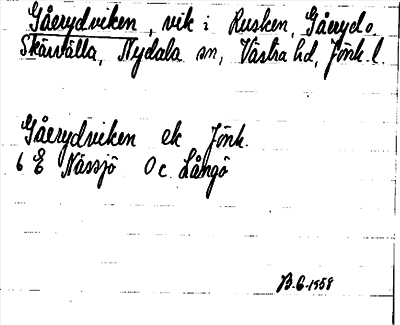 Gåerydviken, vik i Rusken, Gåeryd o.
Skärvälla, Nydala sn, Västra hd, Jönk. l.
Gåerydviken ek Jönk.
6 E Nässjö O c Långö
B.G. 1958